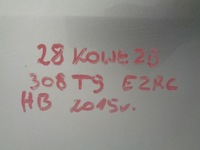 28 KOWEZB
308T9 EZRC
HB 2015r.